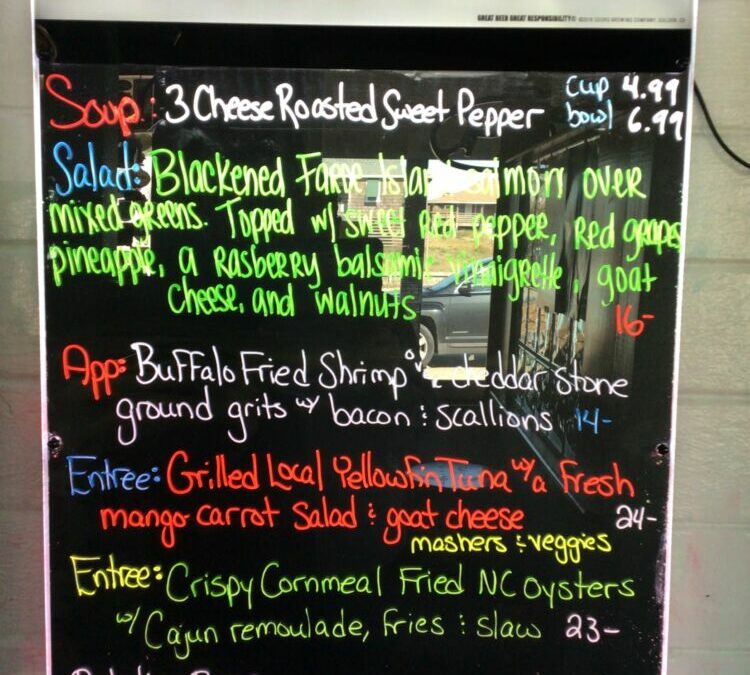 GREAT BEER GREAT RESPONSIBILITY® ©2014 COORS BREWING COMPANY, GOLDEN, CO
Soup: 3 Cheese Roasted Sweet Pepper cup 4.99
bowl 6.99
Salad: Blackened Faroe Island Salmon over
mixed greens. Topped w/ sweet red pepper, red grapes
pineapple, a Rasberry balsamic vinaigrette, goat
cheese, and walnuts
16-
App: Buffalo Fried Shrimp over cheddar stone
ground grits w/ bacon & scallions 14-
Entree: Grilled Local Yellowfin Tuna w/ a fresh
mango carrot salad & goat cheese 24-
mashers & veggies
Entree: Crispy Cornmeal Fried NC oysters
w/ Cajun remoulade, fries & slaw 23-